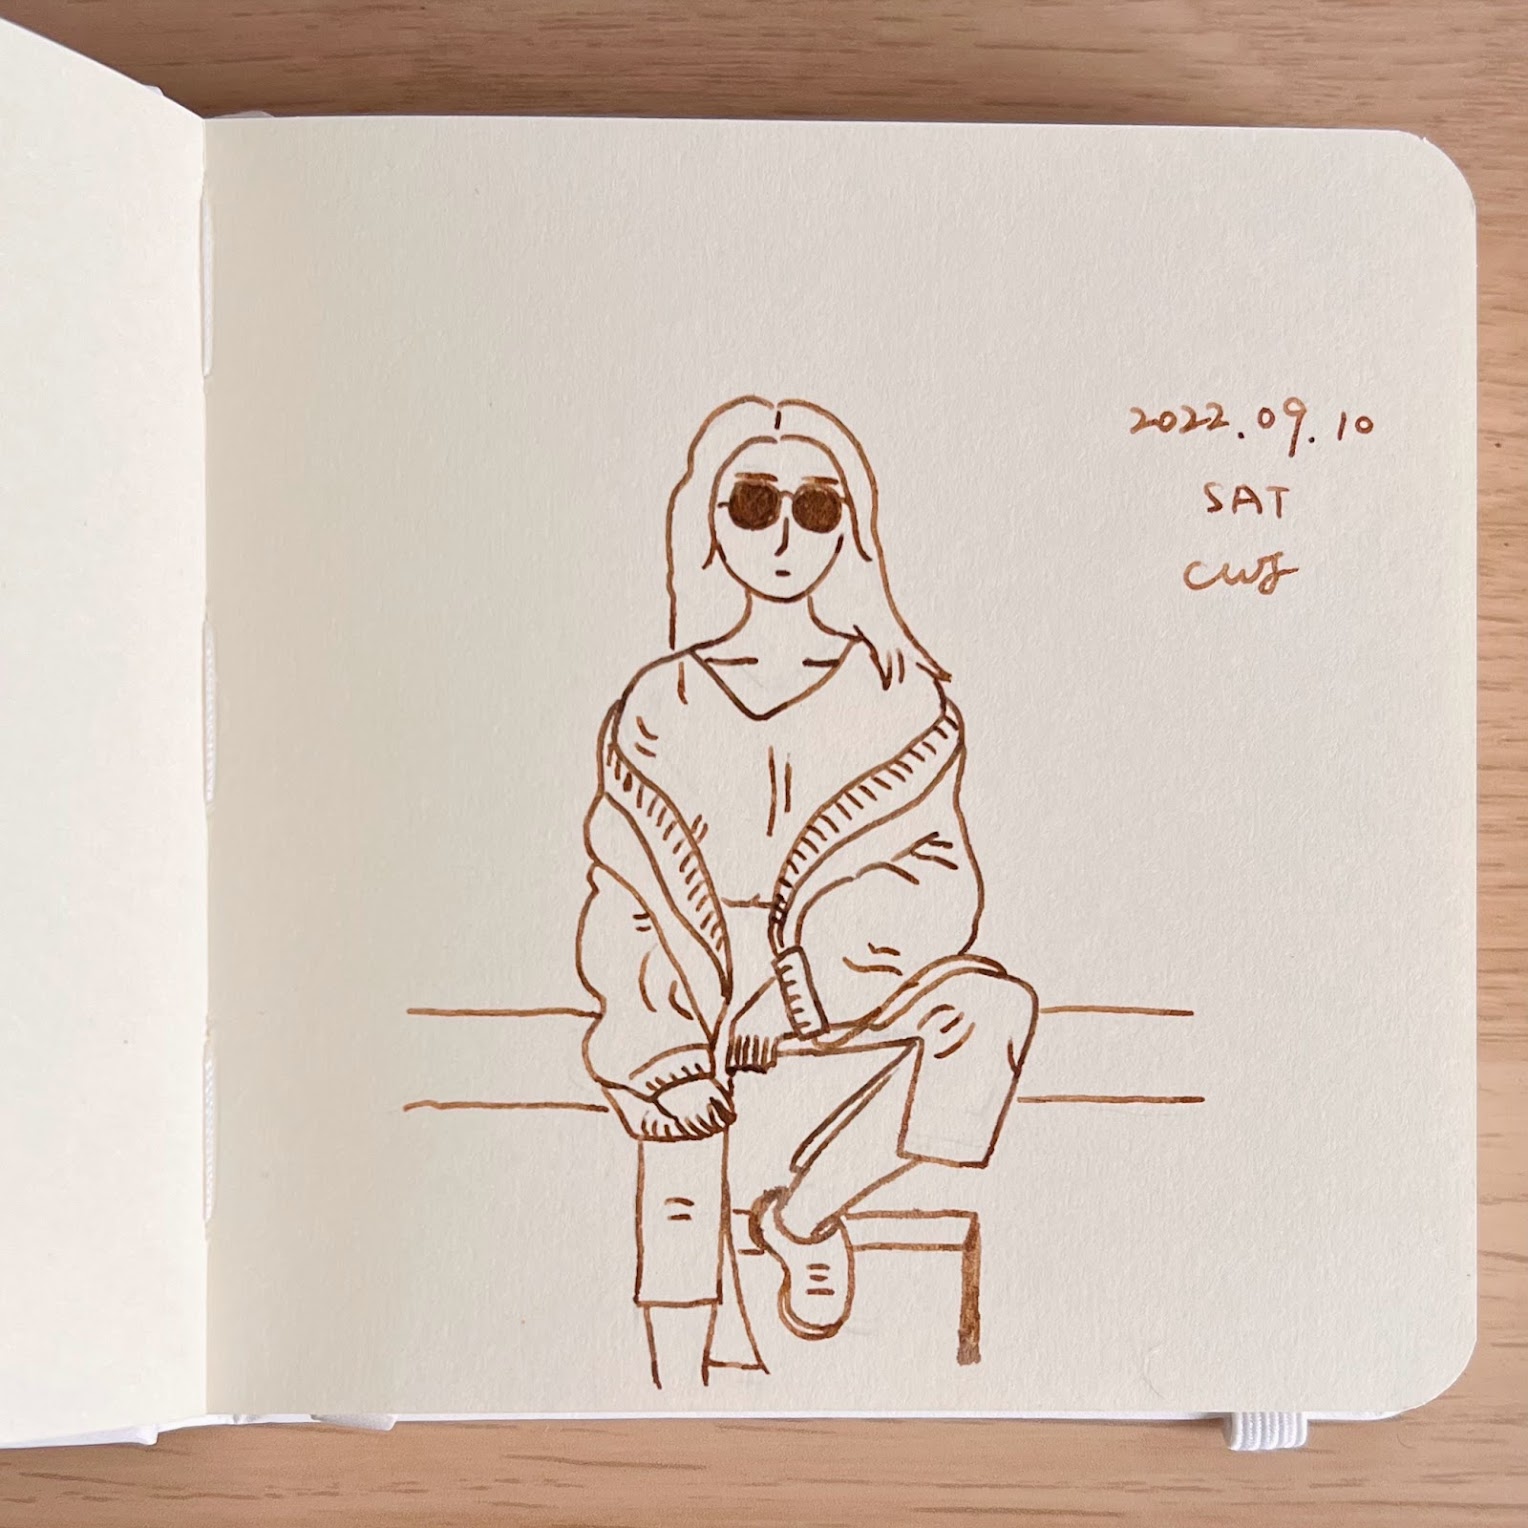 2022.09.10
SAT
cwj